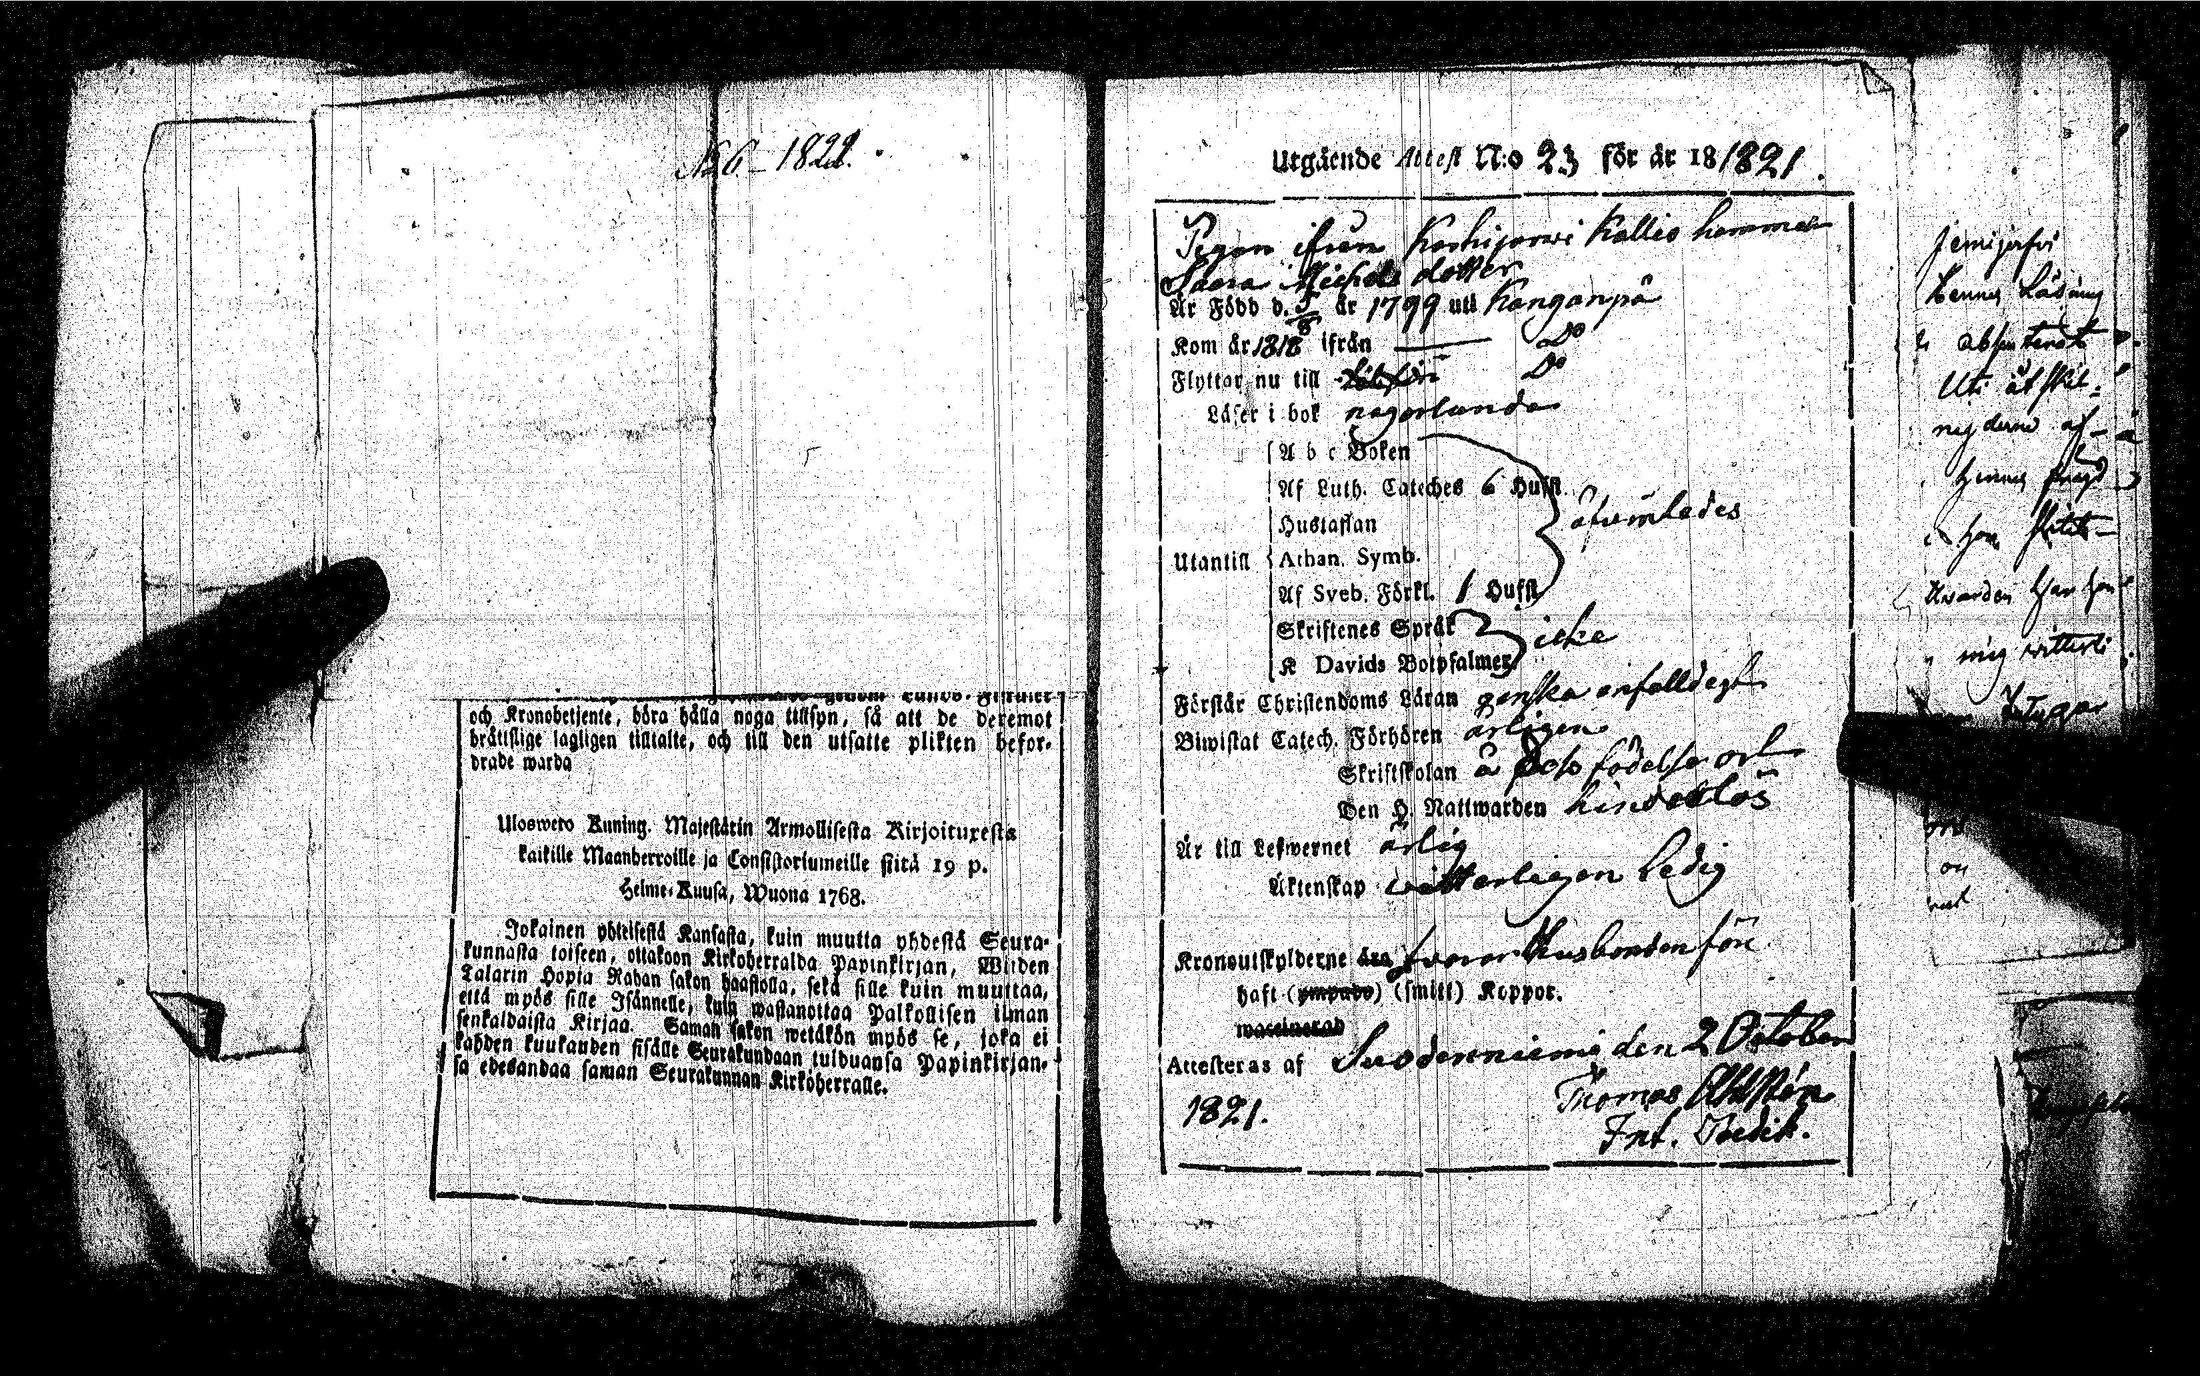 N:o 6 - 1822.
och Kronobetjente, böra hålla noga tillsyn, så att de deremot
brättslige lagligen tilltalte, och till den utsatte plikten befor-
drade warda
Ulosweto Kuning. Majestätin Armollisesta Kirjoituxesta
kaikille Maanherroille ja Consistoriumeille siitä 19 p.
Helme-Kuusa, Wuona 1768.
Jokainen yhteisestä Kansasta, kuin muutta yhdestä Seura-
kunnasta toiseen, ottakoon Kirkoherralda Papinkirjan, Wiiden
Talarin Hopia Rahan sakon haastolla, sekä sille kuin muuttaa,
että myös sille Isännelle, kuin wastanottaa Palkollisen ilman
senkaldaista Kirjaa. Saman sakon wetäkön myös se, joka ei
kahden kuukauden sisälle Seurakundaan tulduansa Papinkirjan-
sa edesandaa saman Seurakunnan Kirkoherralle.
Utgående Attest N:o 23 för år 18 1821.
Pigan ifrån Kallio hemman
Saara Michels dotter
Är Född d. 5/8 år 1799 uti Kanganpä
Kom år 1818 ifrån — Do
Flyttar nu till Do
Läser i bok någorlunda
A b c Boken
Af Luth. Cateches 6 Hufst.
Hustaflan
Utantill Athan. Symb.
Af Sveb. Förkl. 1 Hufst.
åfvenledes
Skriftenes Språk
K Davids Botpsalmer
icke
Förstår Christendoms Läran ganska enfalldigt
Biwistat Catech. Förhören årligen
Skriftskolan å födelse ort
Den H. Nattwarden
Är till Lefwernet ärlig
Äktenskap witterligen ledig
Kronoutskylderne swarar Husbonden före
haft (ympade) (smitt) Koppor.
waccinerad
Attesteras af Suodenniemi den 2 October
1821.
Thomas
jemijerfvi
Hennes Läsning
Uti åtskil-
mig witterli